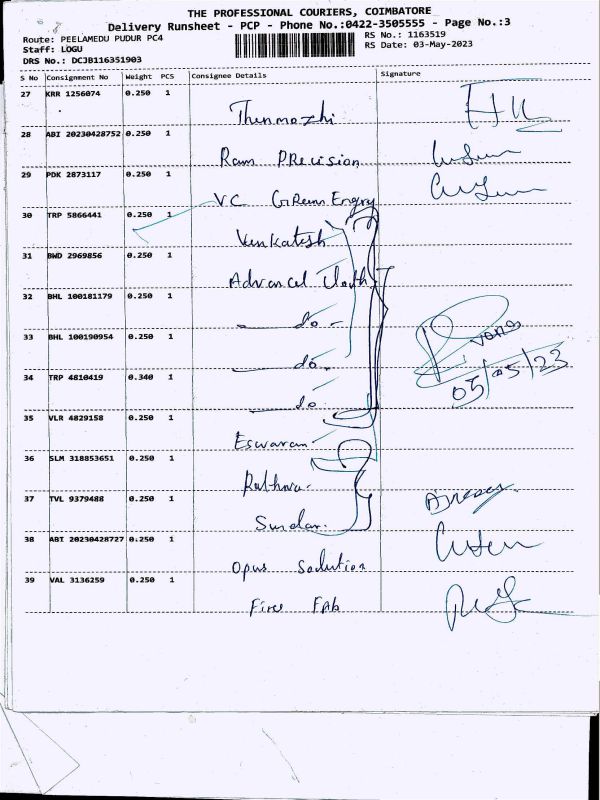 THE PROFESSIONAL COURIERS, COIMBATORE
Delivery Runsheet - PCP - Phone No.:0422-3505555 - Page No.:3
Route: PEELAMEDU PUDUR PC4 RS No.: 1163519
Staff: LOGU RS Date: 03-May-2023
DRS No.: DCJB116351903
S No Consignment No Weight PCS Consignee Details Signature
27 KRR 1256074 0.250 1
Thenmozhi
28 ABI 20230428752 0.250 1
Ram Precision
29 PDK 2873117 0.250 1
VC Green Engry
30 TRP 5866441 0.250 1
Venkatesh
31 BWD 2969856 0.250 1
Advanced
32 BHL 100181179 0.250 1
do
33 BHL 100190954 0.250 1
do
34 TRP 4810419 0.340 1
do 05/05/23
35 VLR 4829158 0.250 1
Eswaran
36 SLM 318853651 0.250 1
Rathna
37 TVL 9379488 0.250 1
Sundar
38 ABI 20230428727 0.250 1
Opus Solution
39 VAL 3136259 0.250 1
Fire Fab